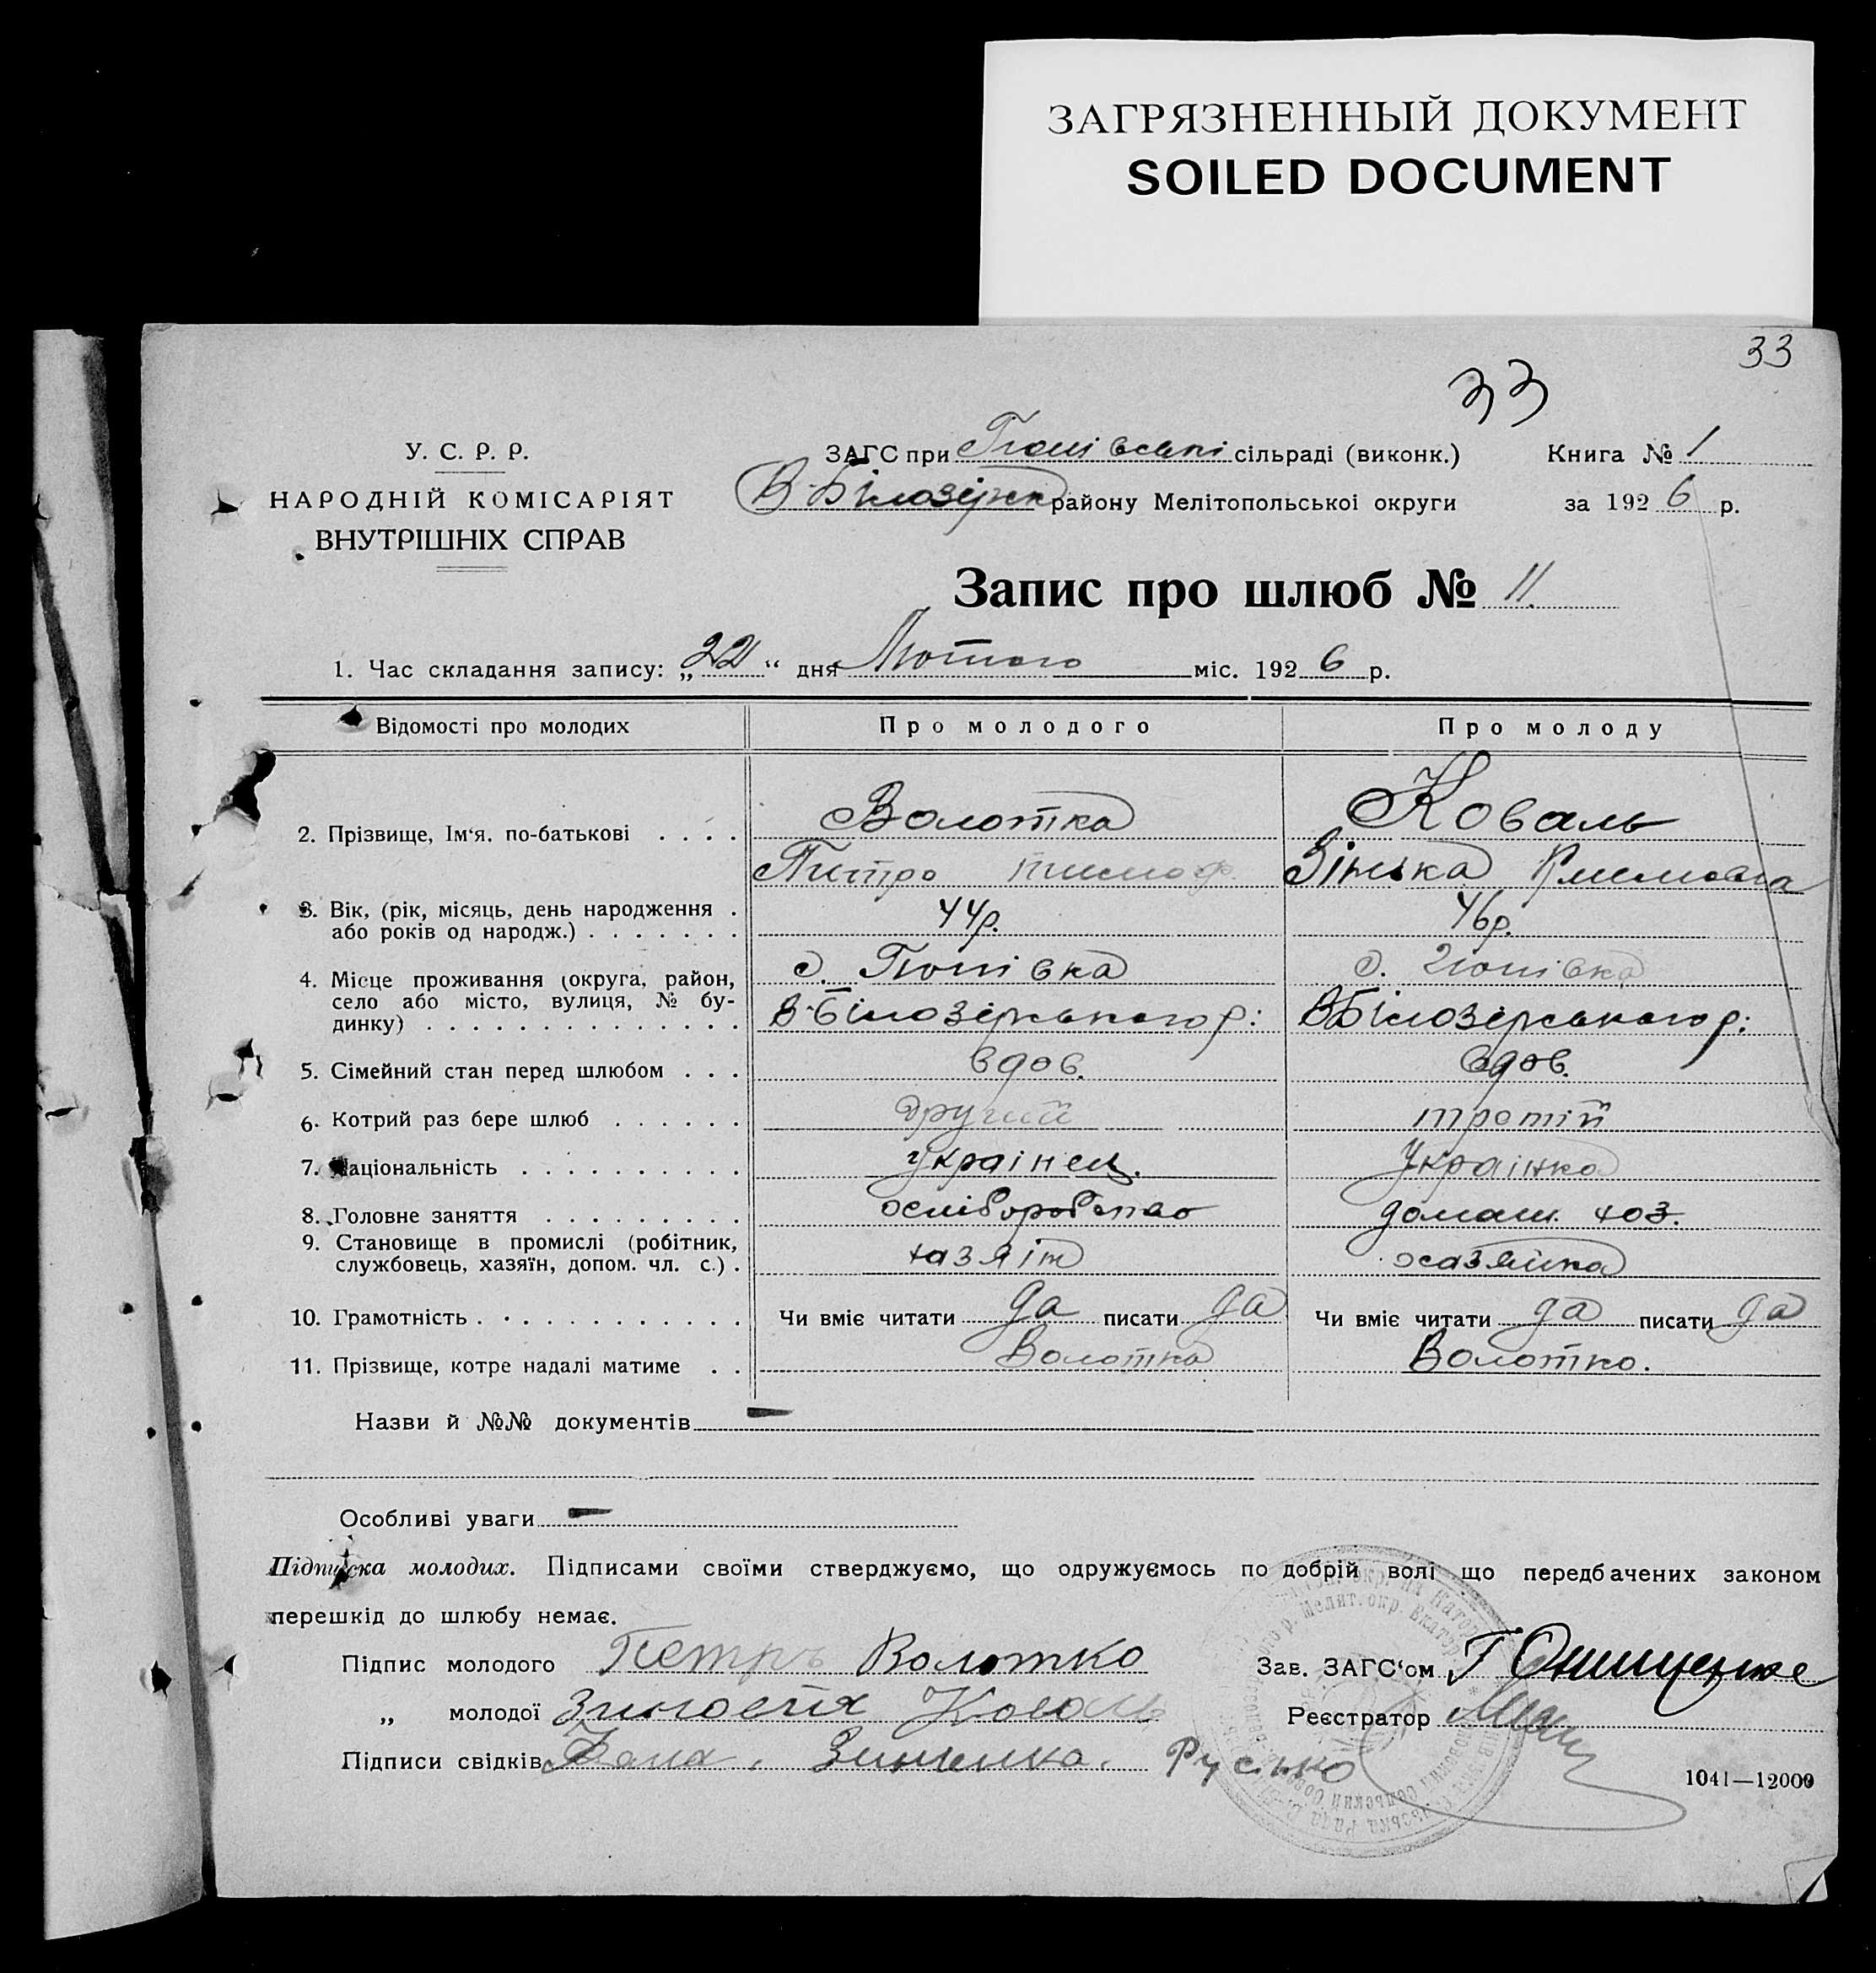 ЗАГРЯЗНЕННЫЙ ДОКУМЕНТ
SOILED DOCUMENT
33
33
У. С. Р. Р.
НАРОДНІЙ КОМІСАРІЯТ
ВНУТРІШНІХ СПРАВ
ЗАГС при Попівські сільраді (виконк.)
В-Білозірк району Мелітопольськоі округи
Книга № 1
за 1926 р.
Запис про шлюб № 11.
1. Час складання запису: „22“ дня Лютого міс. 1926 р.
Відомості про молодих Про молодого Про молоду
2. Прізвище, Ім‘я. по-батькові . . . . Волотка Коваль
Питро тимоф. Зінька Климовна
3. Вік, (рік, місяць, день народження . 44р. 46р.
або років од народж.) . . . . . . .
4. Місце проживання (округа, район, с. Попівка с. Попівка
село або місто, вулиця, № бу- В-Білозірського р: ВБілозірського р:
динку) . . . . . . . . . . . . . .
5. Сімейний стан перед шлюбом . . . вдов. вдов.
6. Котрий раз бере шлюб . . . . . . другий третій
7. Національність . . . . . . . . . . українец. Українка
8. Головне заняття . . . . . . . . . домаш. хоз.
9. Становище в промислі (робітник, хазяін хазяйка
службовець, хазяїн, допом. чл. с.) .
10. Грамотність . . . . . . . . . . . . Чи вміє читати да писати да Чи вміє читати да писати да
11. Прізвище, котре надалі матиме . . Волотка Волотко.
Назви й №№ документів
Особливі уваги
Підписка молодих. Підписами своїми стверджуємо, що одружуємось по добрій волі що передбачених законом
перешкід до шлюбу немає.
Підпис молодого Петръ Волотко
Зав. ЗАГС‘ом
„ молодої Коваль
Реєстратор
Підписи свідків Зинченко. Русько
1041—12000